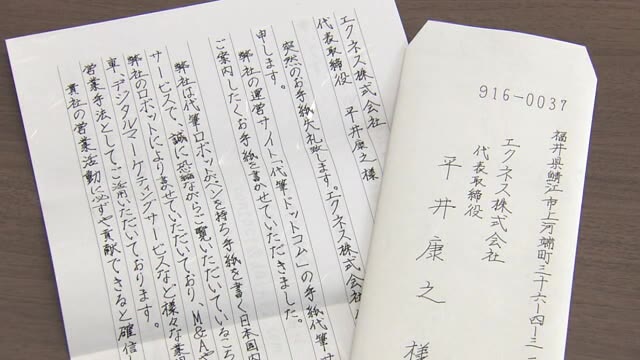 エクネス株式会社
代表取締役 平井康之 様
突然のお手紙失礼致します。エクネス株式会社
申します。
弊社の運営サイト「代筆ドットコム」の手紙代筆サ
ご案内したくお手紙を書かせていただきました。
弊社は代筆ロボットがペンを持ち手紙を書く日本国内
サービスで、誠に恐縮ながらご覧いただいているところ
弊社のロボットにより書かせていただいており、M&A
車、デジタルマーケティングサービスなど様々な業
営業手法としてご活用いただいております。
貴社の営業活動に必ずや貢献できると確信
916-0037
福井県鯖江市上河端町三十六ー四ー三
エクネス株式会社
代表取締役
平井康之 様